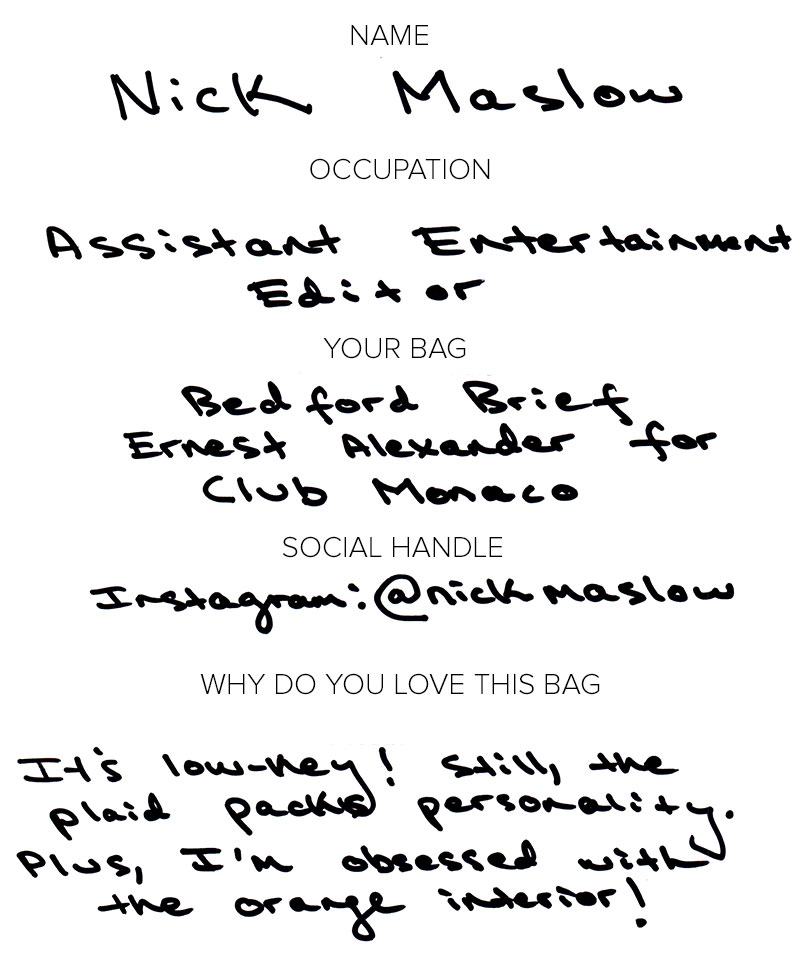 NAME
Nick Maslow
OCCUPATION
Assistant Entertainment
Editor
YOUR BAG
Bedford Brief
Ernest Alexander for
Club Monaco
SOCIAL HANDLE
Instagram: @nickmaslow
WHY DO YOU LOVE THIS BAG
It's low-key! Still, the
plaid packs personality.
Plus, I'm obsessed with
the orange interior!